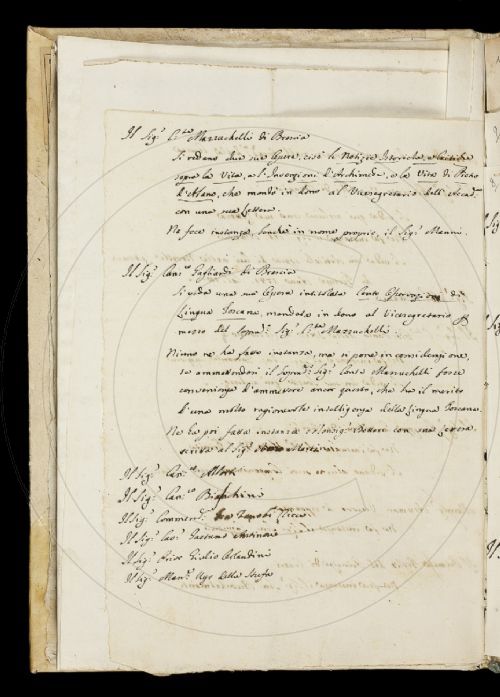 Il Sig.r C.te Mazzuchelli di Brescia
Si vedano due sue Opere, cioè le Notizie Istoriche, e Critiche
sopra la Vita, e l'Invenzioni d'Archimede, e la Vita di Pietro
d'Abano, che mandò in dono al Vicesegretario dell'Accad.
con una sua Lettera.
Ne fece instanza, benchè in nome proprio, il Sig.r Manni.
Il Sig.r Can.co Gagliardi di Brescia
Si veda una sua Opera intitolata Cento Osservazioni di
Lingua Toscana, mandata in dono al Vicesegretario
mezzo del sopra.o Sig.r C.te Mazzuchelli.
Niuno ne ha fatto instanza, ma si pone in considerazione,
se ammettendosi il sopra.o Sig.r Conte Mazzuchelli forse
convenisse d'ammettere ancor questo, che ha il merito
d'una molto ragionevole intelligenza della Lingua Toscana.
Ne ha poi fatta instanza Monsig.r Bottari con sua lettera
scritta al Sig.r
Il Sig.r Can.co
Il Sig.r Can.co
Il Sig.r Commend.
Il Sig.r Cav. Gaetano Antinori
Il Sig.r Prior Giulio Orlandini
Il Sig.r March. Ugo della Stufa